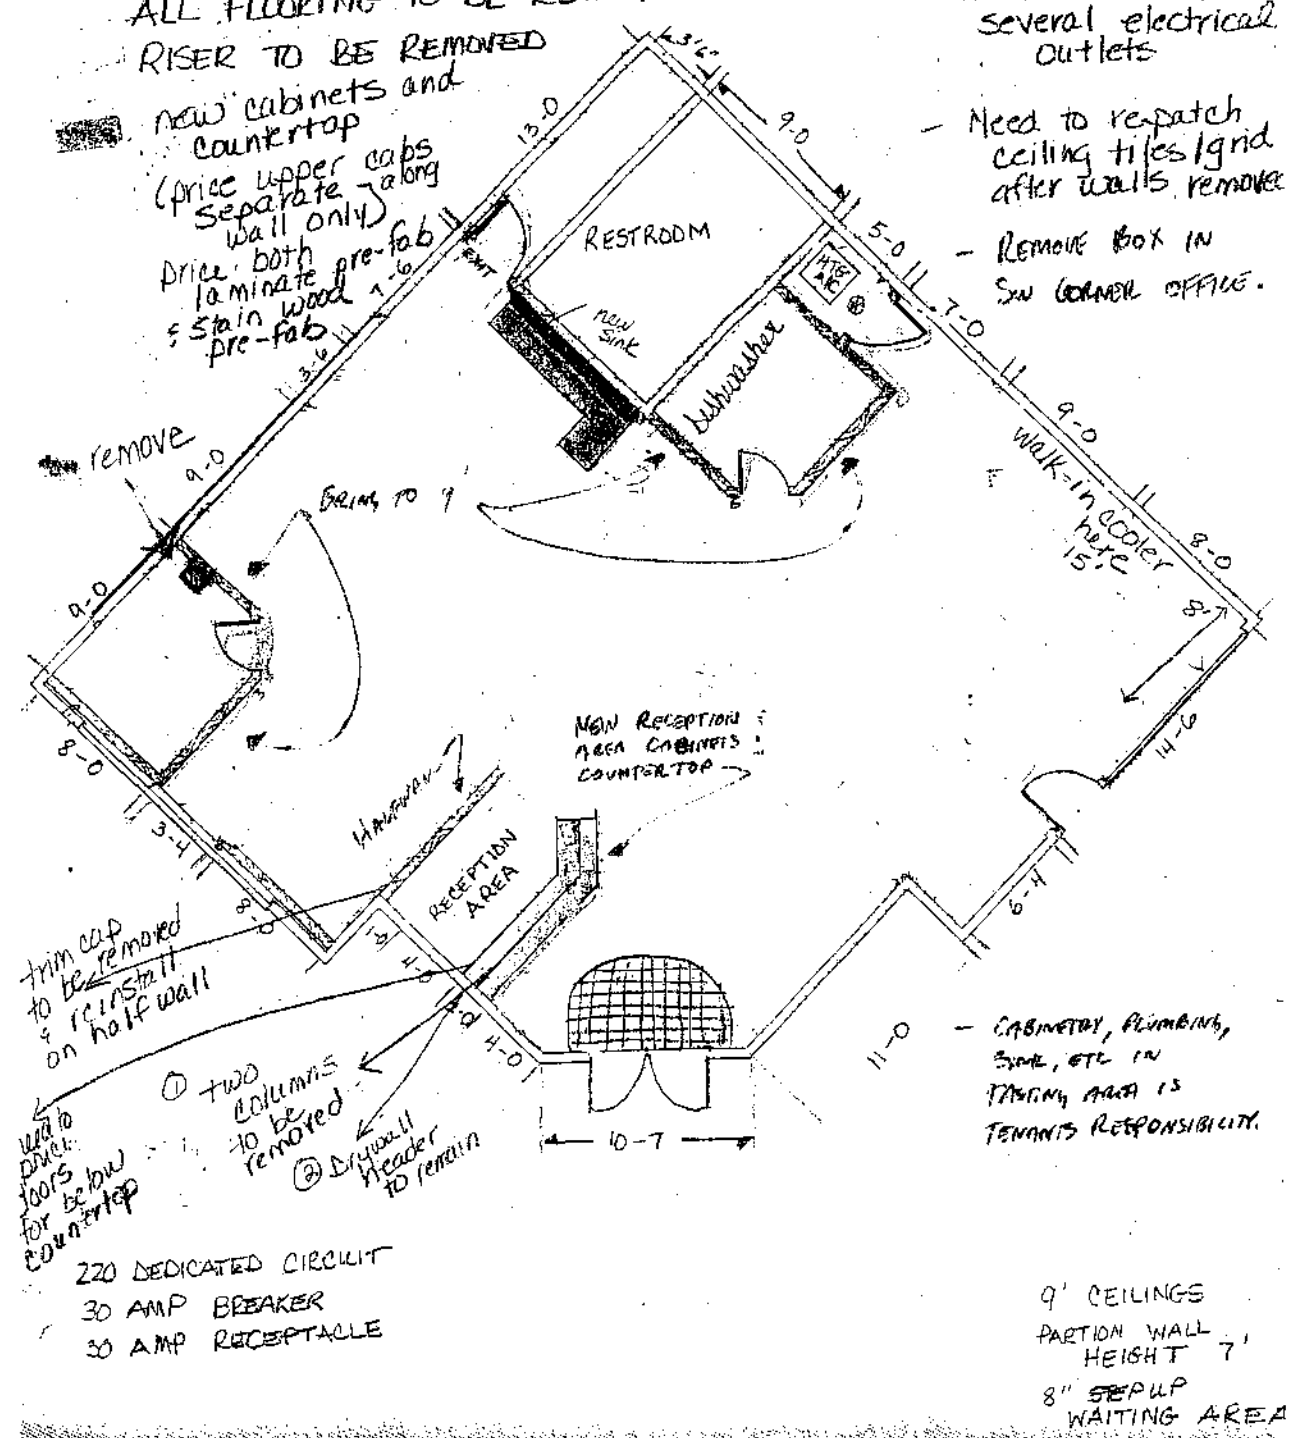 ALL FLOORING TO BE
RISER TO BE REMOVED
new cabinets and
countertop
(price upper cabs
separate - along
wall only)
price both
laminate pre-fab
& stain wood
pre-fab
several electrical
outlets
- Need to repatch
ceiling tiles/grid
after walls remove
- REMOVE BOX IN
SW CORNER OFFICE.
3'6"
13-0
9-0
5-0
7-0
9-0
8-0
8'
14-6
6-4
11-0
10-7
4-0
4-0
8-0
3-4
8-0
9-0
9-0
3-6
7-6
EXIT
RESTROOM
new
sink
HTG
A/C
Dishwasher
walk-in cooler
here
15'
remove
BRING TO 9
NEW RECEPTION
AREA CABINETS
COUNTERTOP
RECEPTION
AREA
trim cap
to be removed
& reinstall
on half wall
① two
columns
to be
removed
② Drywall
header
to remain
doors
for below
countertop
- CABINETRY, PLUMBING,
SINK, ETC IN
TASTING AREA IS
TENANTS RESPONSIBILITY.
220 DEDICATED CIRCUIT
30 AMP BREAKER
30 AMP RECEPTACLE
9' CEILINGS
PARTION WALL
HEIGHT 7'
8" SEPUP
WAITING AREA